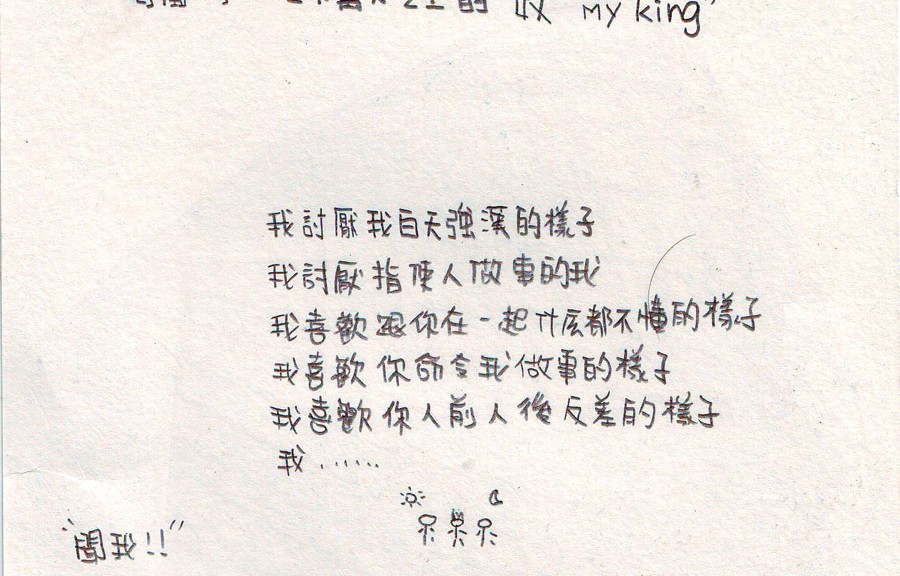 的 "My king"
我討厭我白天強溪的樣子
我討厭指使人做事的我
我喜歡跟你在一起什么都不懂的樣子
我喜歡你命令我做事的樣子
我喜歡你人前人後反差的樣子
我......
"聞我!!"